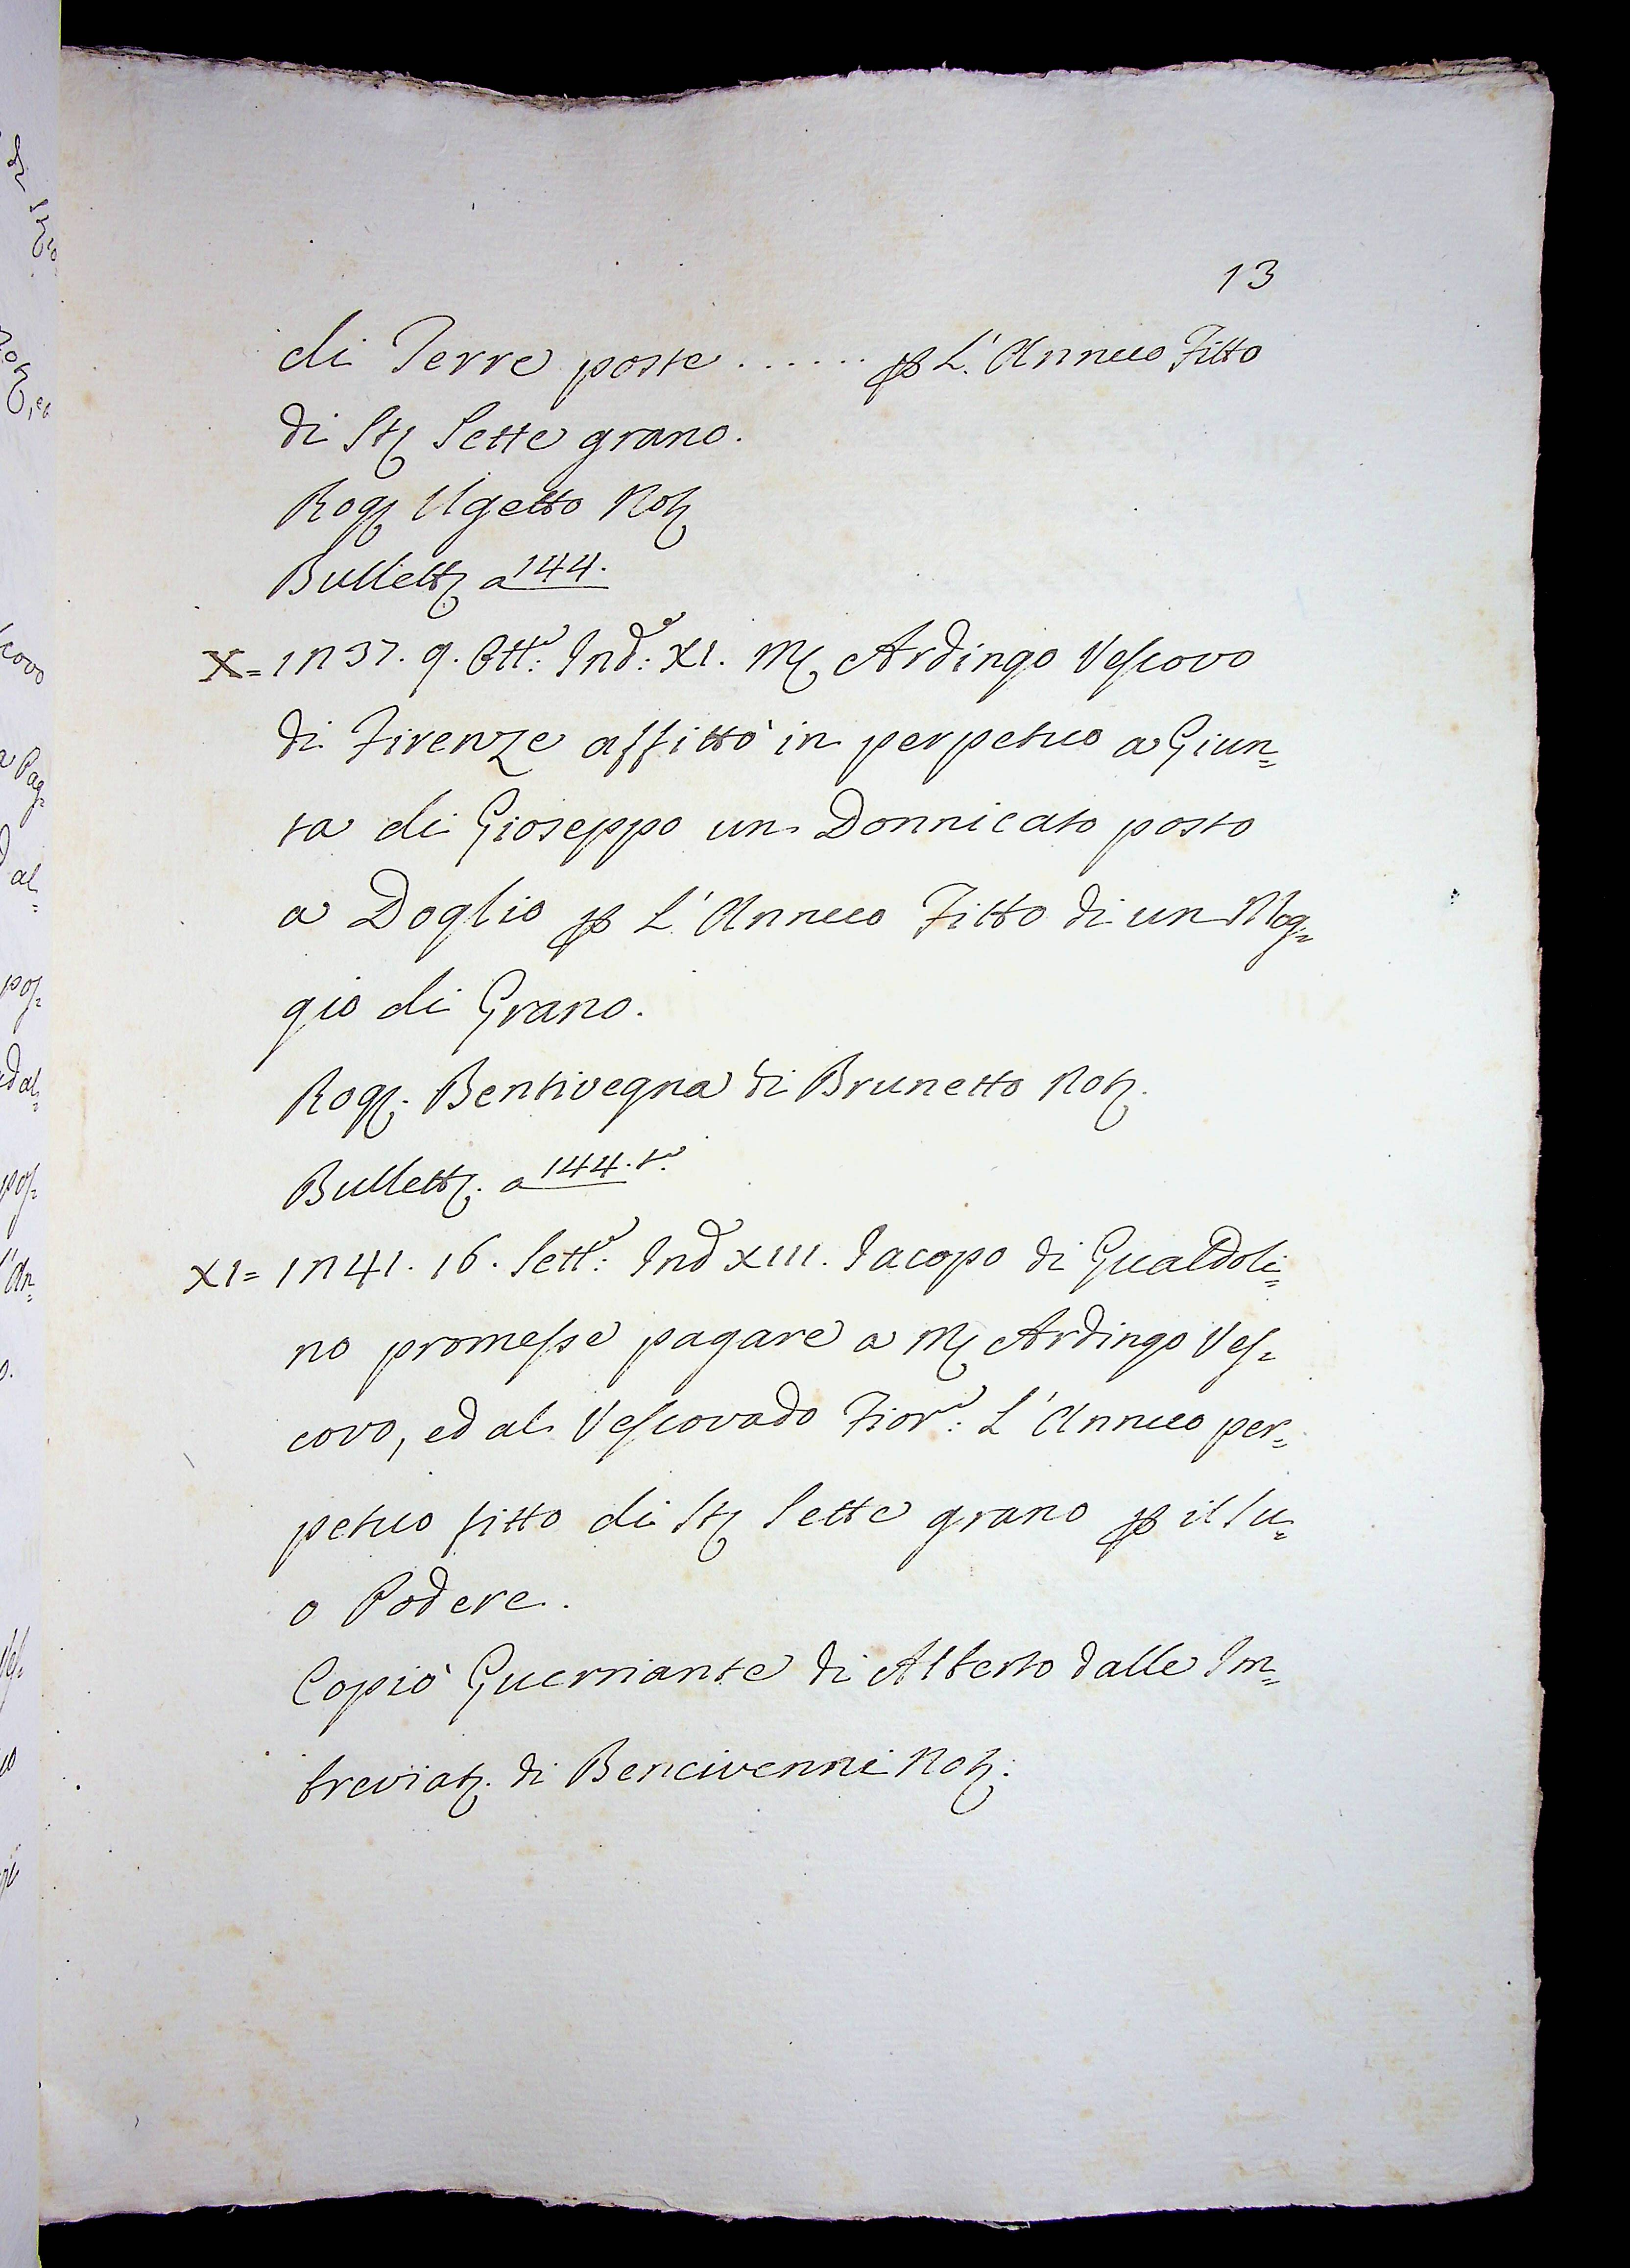 13
di Terre poste ...... p L'Annuo Fitto
di Sta Sette grano.
Rog. Ugetto Not.
Bullett. a 144.
X = 1237. 9. Ott.e: Ind.e: XI. M. Ardingo Vescovo
di Firenze affittò in perpetuo a Giun=
ta di Gioseppo un Donnicato posto
a Doglio p L'Annuo Fitto di un Mog=
gio di Grano.
Rog. Bentivegna di Brunetto Not.
Bullett. a 144. t.o
XI = 1241. 16. Sett.e: Ind.e XIII. Jacopo di Gualdoli=
no promesse pagare a M. Ardingo Ves=
covo, ed al Vescovado Fior.o: L'Annuo per=
petuo fitto di Sta Sette grano p il su=
o Podere.
Copiò Guerriante di Alberto dalle Im=
breviat. di Bencivenni Not: